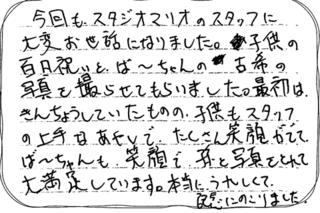 今回も、スタジオマリオのスタッフに
大変お世話になりました。子供の
百日祝いと、ば〜ちゃんの古希の
写真を撮らせてもらいました。最初は、
きんちょうしていたものの、子供もスタッフ
の上手なあやしで、たくさん笑顔がでて
ば〜ちゃんも、笑顔で、孫と写真をとれて
大満足しています。本当に、うれしくて
記念にのこりました。